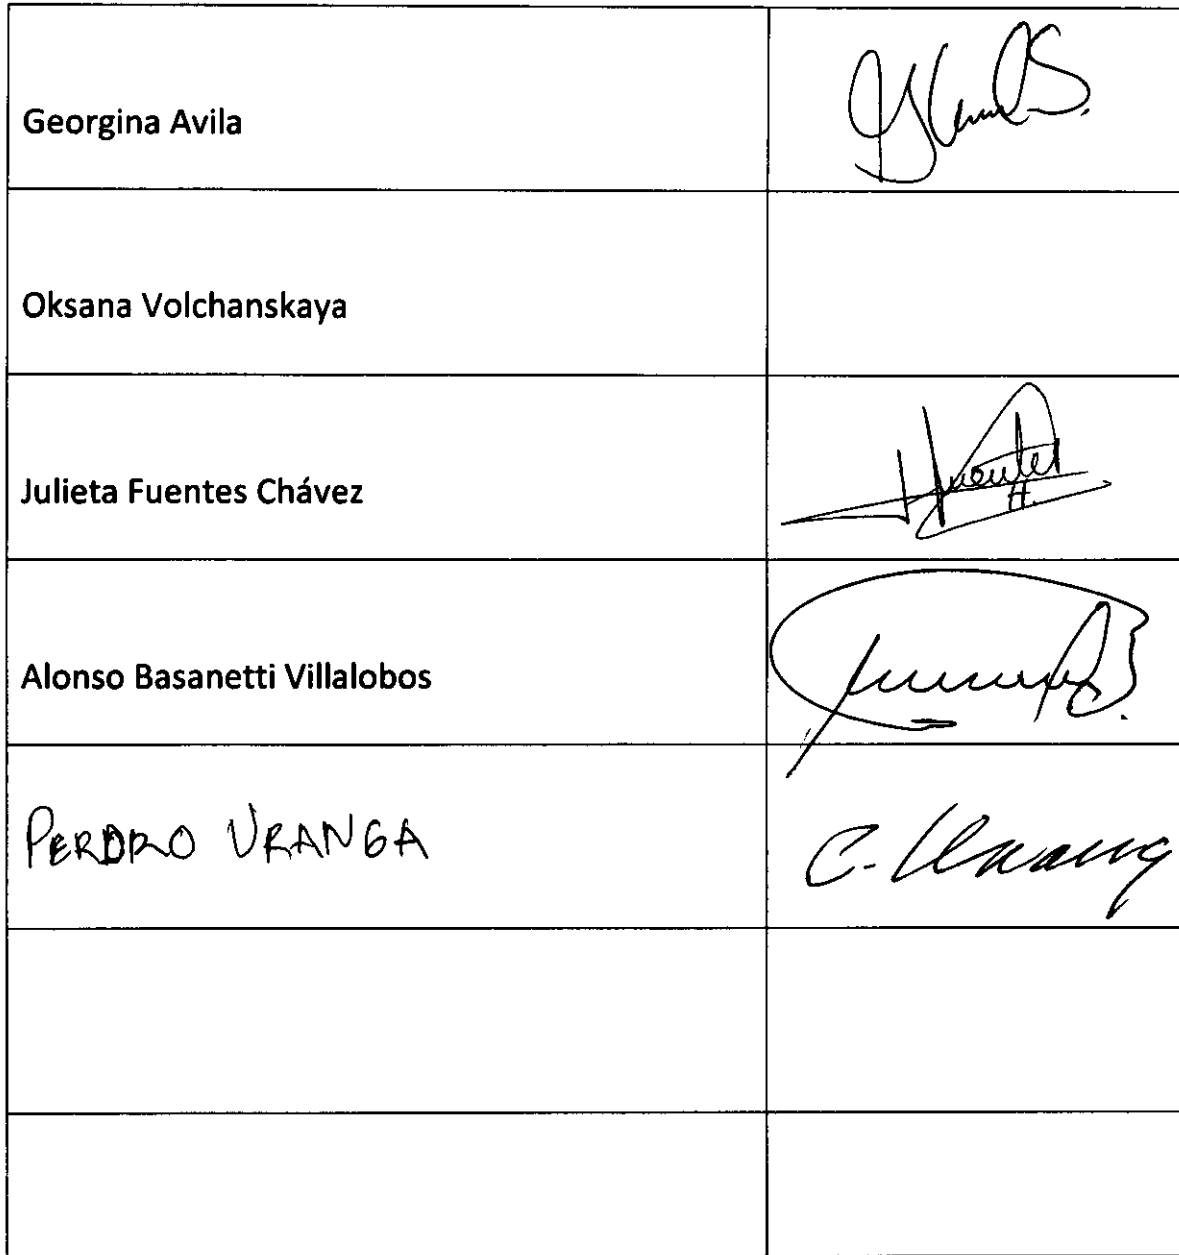 Georgina Avila
Oksana Volchanskaya
Julieta Fuentes Chávez
Alonso Basanetti Villalobos
PERDRO URANGA